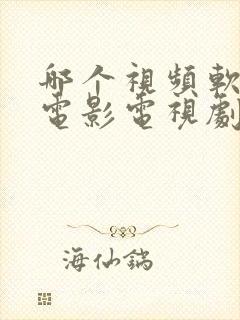 那个視頻軟
電影電視劇
海仙鎬